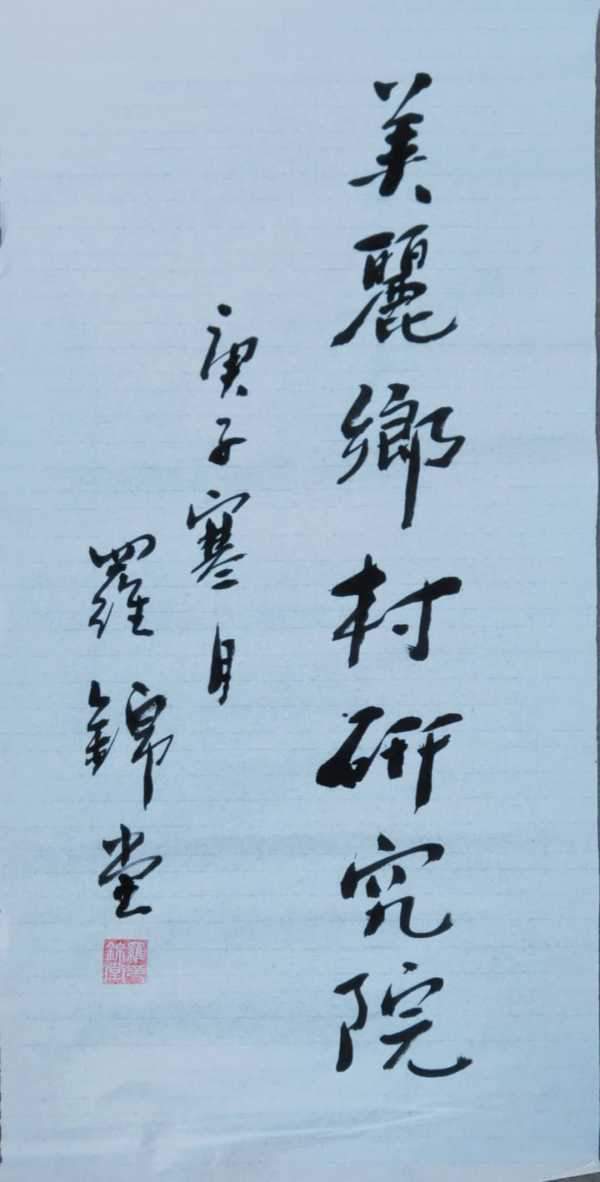 美麗鄉村研究院
庚子寒月
羅錦堂